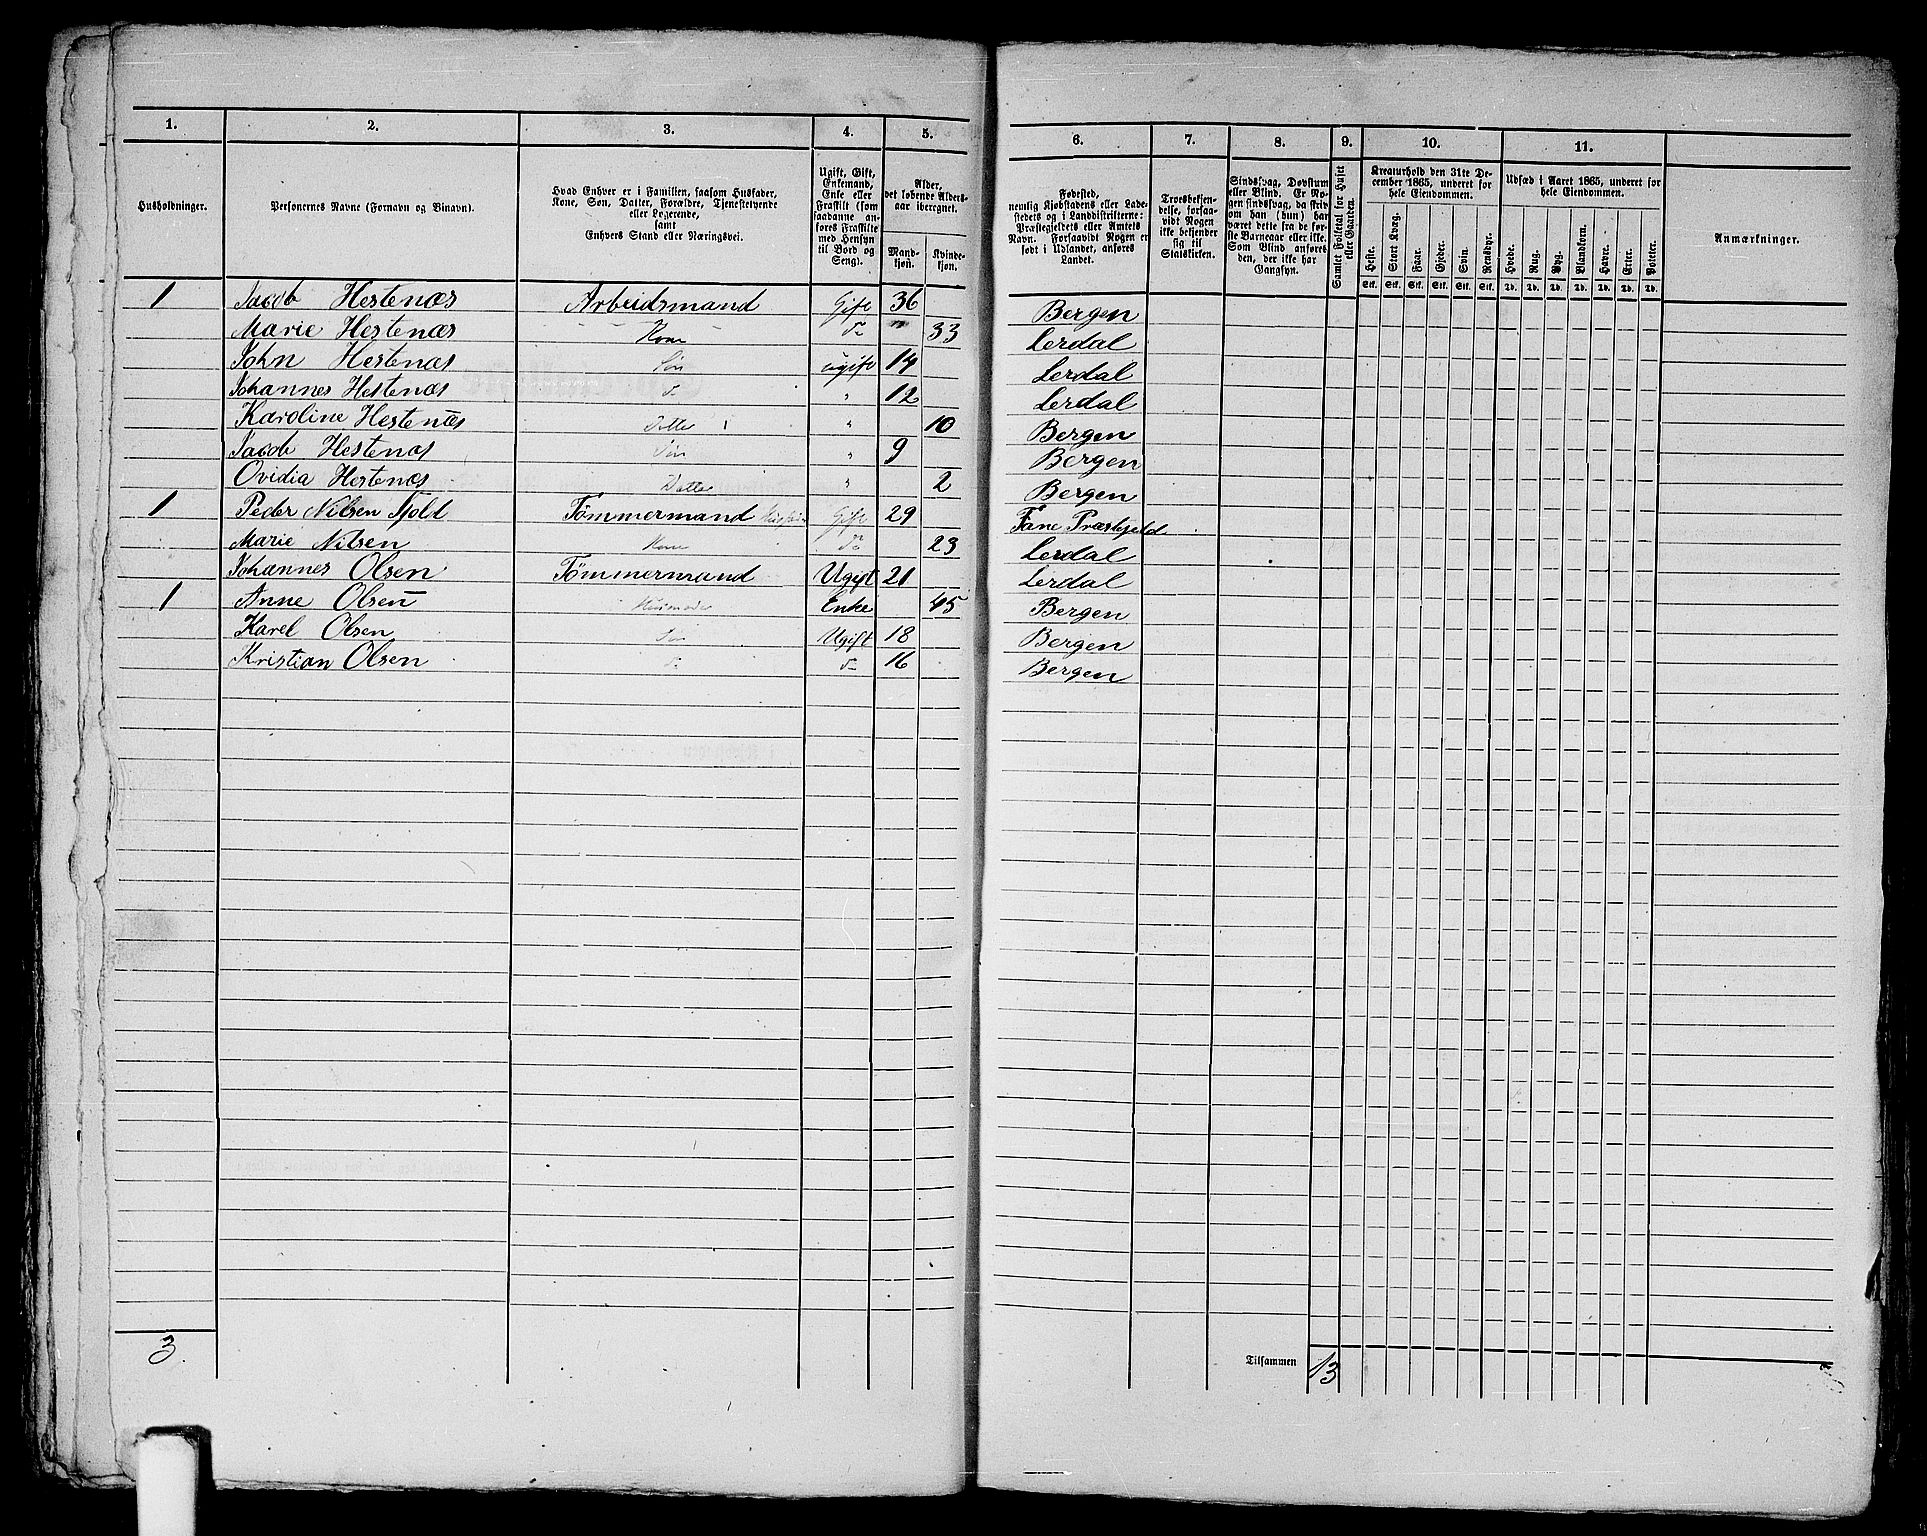 1. 2. 3. 4. 5. 6. 7. 8. 9. 10. 11.
Husholdninger. Personernes Navne (Fornavn og Binavn). Hvad Enhver er i Familien, saasom Husfader, Kone, Søn, Datter, Forældre, Tjenestetyende eller Logerende, samt Enhvers Stand eller Næringsvei. Ugift, Gift, Enkemand, Enke eller Fraskilt (som saadanne anføres Fraskilte med Hensyn til Bord og Seng). Alder, det løbende Aldersaar iberegnet. Mandkjøn. Kvindekjøn. Fødested, nemlig Kjøbstadens eller Ladestedets og i Landdistrikterne: Præstegjeldets eller Amtets Navn. Forsaavidt Nogen er født i Udlandet, anføres Landet. Troesbekjendelse, forsaavidt Nogen ikke bekjender sig til Statskirken. Sindssvag, Døvstum eller Blind. Er Nogen sindssvag, da skrives om han (hun) har været dette fra de første Barneaar eller ikke. Som Blind anføres den, der ikke har Gangsyn. Samlet Folketal for Huset eller Gaarden. Kreaturhold den 31te December 1865, underet for hele Eiendommen. Udsæd i Aaret 1865, underet for hele Eiendommen. Anmærkninger.
Heste. Stort Kvæg. Faar. Gjeder. Svin. Rensdyr. Hvede. Rug. Byg. Blandkorn. Havre. Erter. Poteter.
Stk. Stk. Stk. Stk. Stk. Stk. Td. Td. Td. Td. Td. Td. Td.
1 Jacob Hestenæs Arbeidsmand Gift 36 Bergen
Marie Hestenæs Kone do 33 Lerdal
John Hestenæs Søn ugift 14 Lerdal
Johannes Hestenæs do " 12 Lerdal
Karoline Hestenæs Datter " 10 Bergen
Jacob Hestenæs Søn " 9 Bergen
Ovidia Hestenæs Datter " 2 Bergen
1 Peder Nilsen Tfold Tømmermand Husfader Gift 29 Fane Præstgjeld
Marie Nilsen Kone do 23 Lerdal
Johannes Olsen Tømmermand Ugift 21 Lerdal
1 Anne Olsen Husmoder Enke 45 Bergen
Karel Olsen Søn Ugift 18 Bergen
Kristian Olsen do do 16 Bergen
3 Tilsammen 13